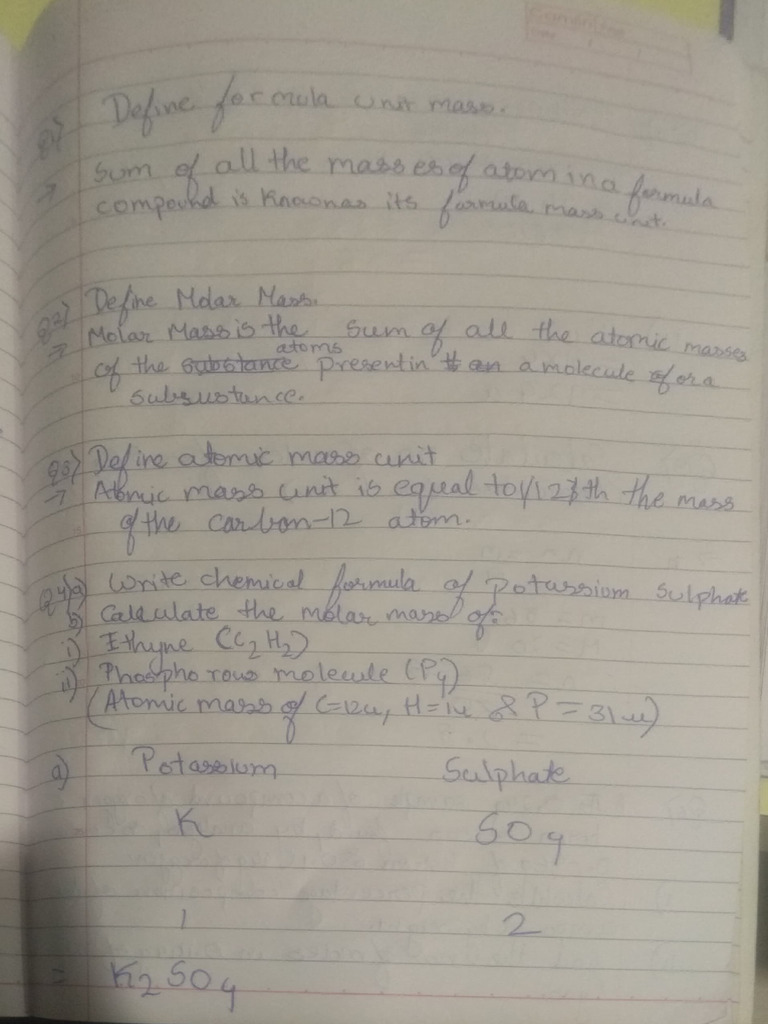 Q1) Define formula unit mass.
→ Sum of all the masses of atom in a formula
compound is Knaonas its formula mass unit.
Q2) Define Molar Mass.
→ Molar Mass is the sum of all the atomic masses
of the substance atoms present in an a molecule of or a
subsustance.
Q3) Define atomic mass unit
→ Atomic mass unit is equal to 1/12th the mass
of the carbon-12 atom.
Q4)a) Write chemical formula of Potassium Sulphate
b) Calculate the molar mass of:
i) Ethyne (C2H2)
ii) Phosphorous molecule (P4)
(Atomic mass of C=12u, H=1u & P=31u)
a) Potassium Sulphate
K SO4
1 2
= K2SO4